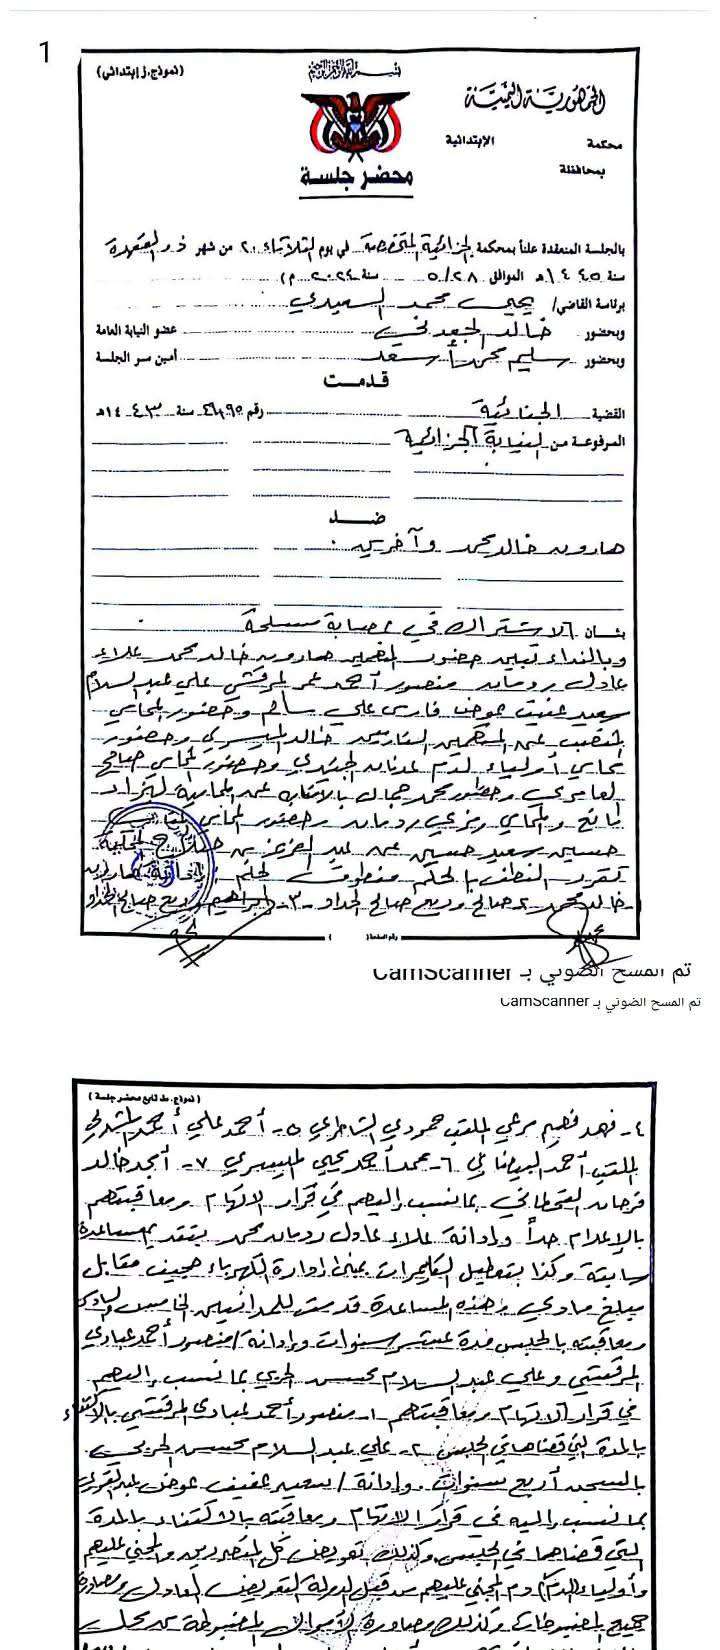 1
(نموذج. ز إبتدائي)
بسم الله الرحمن الرحيم
الجمهورية اليمنية
محكمة الإبتدائية
بمحافظة
محضر جلسة
بالجلسة المنعقدة علناً بمحكمة الجزائية المتخصصة في يوم الثلاثاء ٢٠ من شهر ذو القعدة
سنة ١٤٤٥هـ الموافق ٥/٢٨ سنة ٢٠٢٤م)
برئاسة القاضي/ يحيى محمد السعيدي
وبحضور خالد الجعدني عضو النيابة العامة
وبحضور سليم محمد سعد أمين سر الجلسة
قدمت
القضية الجنائية رقم سنة ١٤٤٣هـ
المرفوعة من النيابة الجزائية
ضد
هارون خالد محمد وآخرين.
بشأن الاشتراك في عصابة مسلحة
وبالنداء تبين حضور المتهمين هارون خالد محمد علاء
عادل رومان منصور أحمد المرقشي علي عبدالسلام
سعيد عفيف عوض فارس علي سالم وحضور المحامي
المنصب عن المتهمين الفارين خالد الميسري وحضور
محامي أولياء الدم عدنان الجنيدي وحضور المحامي صالح
العامري وحضور محمد جمال بالانابة عن المحامية
المحامي وحضور المحامي
حسين سعيد حسين عن عبدالعزيز المحكمة
تقرر النطق بالحكم منطوق الحكم هارون
خالد محمد ٢- صالح وديع صالح الحداد ٣- ابراهيم وديع صالح الحداد
رقم الصفحة ( )
تم المسح الضوئي بـ CamScanner
تم المسح الضوئي بـ CamScanner
(نموذج. ط تابع محضر جلسة)
٤- فهد فهيم مرعي الملقب حمودي الشاطري ٥- أحمد علي أحمد المشدلي
الملقب أحمد البيضاني ٦- محمد أحمد يحيى الميسري ٧- أمجد خالد
فرحان القحطاني بما نسب إليهم في قرار الاتهام ومعاقبتهم
بالإعدام حداً وإدانة علاء عادل رومان محمد بتقديم مساعدة
سابقة وكذا بتعطيل الكاميرات بمبنى إدارة الكهرباء مقابل
مبلغ مادي وهذه المساعدة قدمت للمدانين الخامس والسادس
ومعاقبته بالحبس مدة عشر سنوات وإدانة /منصور أحمد عبادي
المرقشي وعلي عبدالسلام محسن الحربي بما نسب إليهم
في قرار الاتهام ومعاقبتهم ١- منصور أحمد عبادي المرقشي بالاكتفاء
بالمدة التي قضاها في الحبس ٢- علي عبدالسلام محسن الحربي
بالسجن أربع سنوات. وإدانة /سعيد عفيف عوض
بما نسب إليه في قرار الاتهام ومعاقبته بالاكتفاء بالمدة
التي قضاها في الحبس وكذلك تعويض كل المتضررين والمجني عليهم
وأولياء الدم من قبل الدولة التعويض العادل ومصادرة
جميع المضبوطات وكذلك مصادرة الأموال المضبوطة